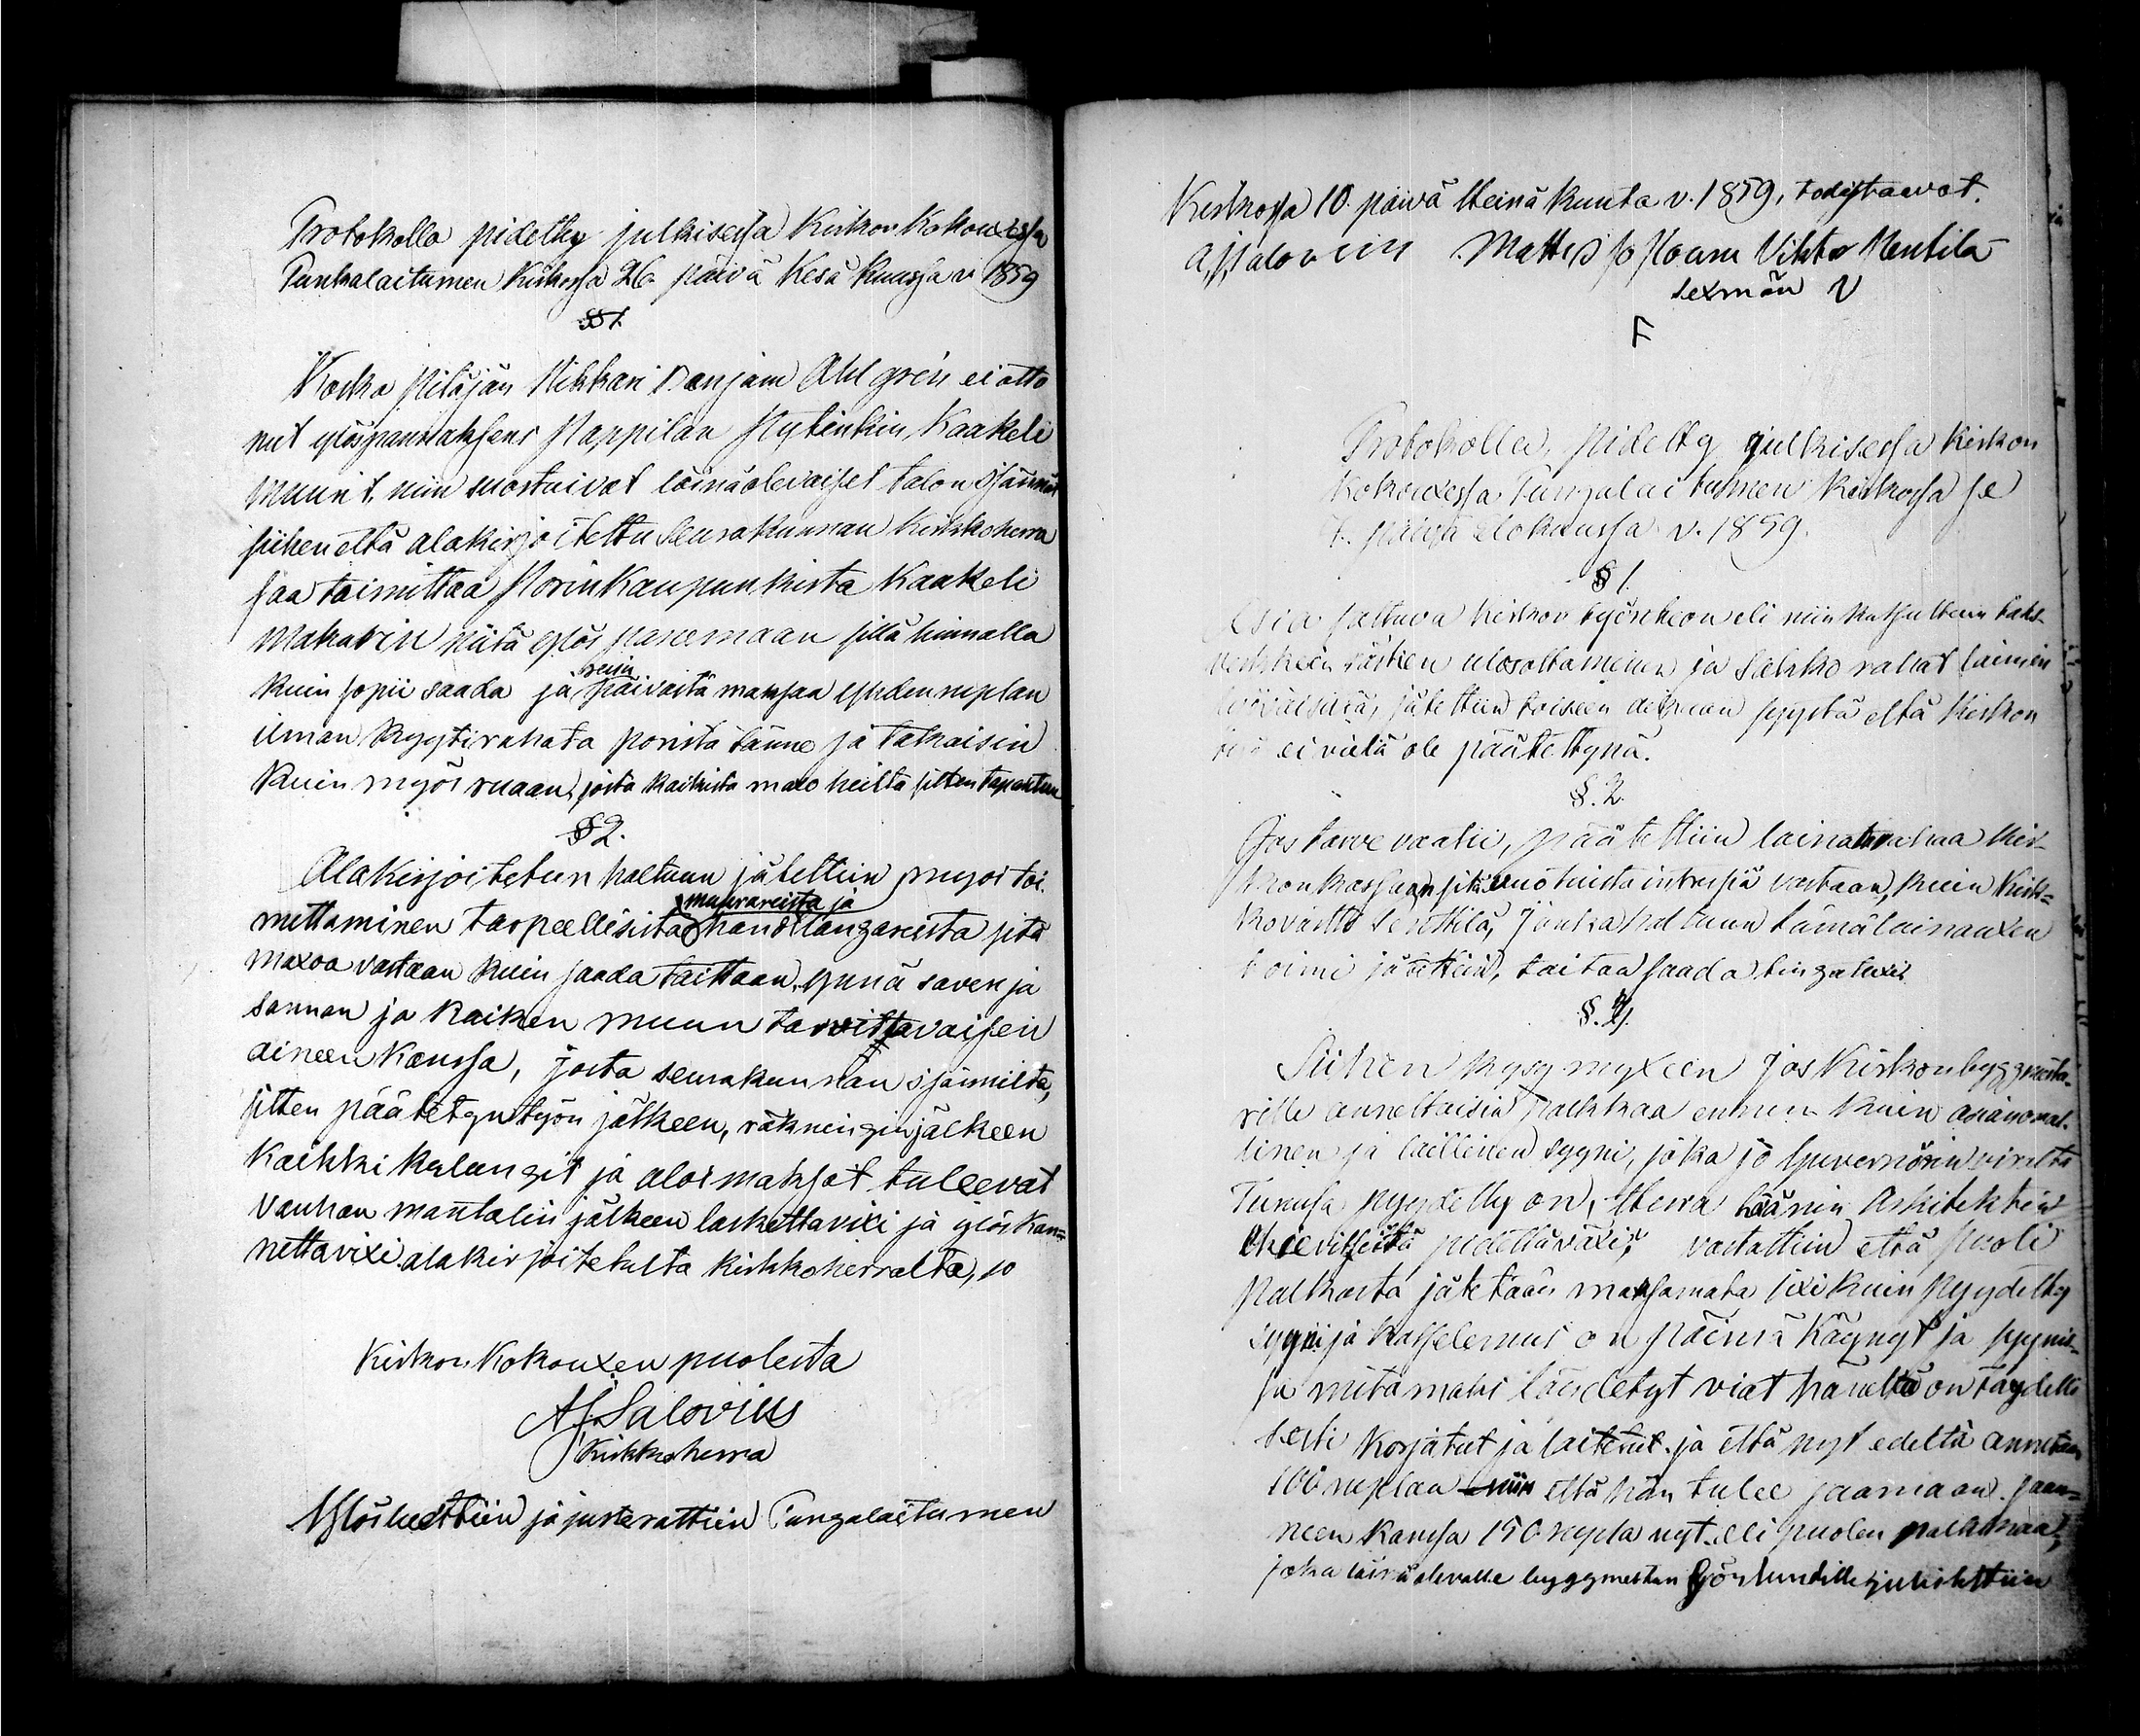 Protokolla pidetty julkisessa Kirkon Kokouxessa
Punkalaitumen Kirkossa 26 päivä Kesä kuussa v 1859
§ 1.
Koska Pitäjän Nikkari Benjam Ahlgrén ei otta
nut ylöspannaksens Pappilan Pytinkiin Kaakeli
muurit, niin suostuivat läsnäolevaiset talon isännät
siihen että alakirjoitettu Seurakunnan Kirkkoherra
saa toimittaa Porin Kaupunkista Kaakeli
Makarin niitä ylös panemaan sillä hinnalla
kuin sopii saada ja päivästä maksaa yhden ruplan
ilman kyytirahata Porista tänne ja takaisin
kuin myös ruaan, josta kaikista maxo heiltä sitten tapahtuu
§ 2.
Alakirjoitetun haltuun jätettiin myös toi
mittaminen tarpeellisista muurareista ja handtlangareista sitä
maxoa vastaan kuin saada taittaan, ynnä saven ja
sannan ja kaiken muun tarvittavaisen
aineen kanssa, josta seurakunnan isännilta,
sitten päätetyn työn jälkeen, räkningin jälkeen
Kaikki kulungit ja ulosmaksot tuleevat
Vanhan mantalin jälkeen laskettavixi ja ylöskan=
nettavixi alakirjoitetulta kirkkoherralta, jo
Kirkon Kokouxen puolesta
A J Salovius
Kirkkoherra
Ylösluettiin ja justerattiin Pungalaitumen
Kirkossa 10 päivä Heinä kuuta v. 1859, todistaavat.
A. J. Salovius Matts Johan Vihtor Mentilä
sexmän
Protokolla, pidetty julkisessa Kirkon
Kokouxessa Pungalaitumen Kirkossa se
7. päivä Elokuussa v. 1859.
§ 1.
Asia
ulosottaminen ja
jätettiin toiseen aikaan syystä että Kirkon
työ ei vielä ole päätettynä.
§. 2.
Jos tarve vaatii, päätettiin lainata rahaa Kir-
kon kassaan sitä huokeista intressiä vastaan, kuin Kirk=
kovärtti Seristilä, jonka haltuun tämä lainauxen
toimi jätettiin, taitaa saada tingatuxi.
§. 3.
Siihen kysymyxeen jos Kirkon byggmesta-
rille annettaisiin palkkaa ennen kuin asianomai-
nen ja laillinen syyni, joka jo Guvernörin virasta
Turussa pyydetty on, Herra Läänin Arkitektin
Chieviitziltä pidettäväxi, vastattiin että puoli
Palkasta jätetään maksamata sixi kuin pyydetty
syyni ja katselemus on päänsä käynyt ja syynis-
sä mitä maks löydetyt viat häneltä on täydelli
sesti korjatut ja laitetut, ja että nyt edeltä annetaan
100 ruplaa että hän tulee saamaan saa=
neen kanssa 150 rupla nyt eli puolen palkkaa,
joka läsnäolevalle byggmestari julistettiin